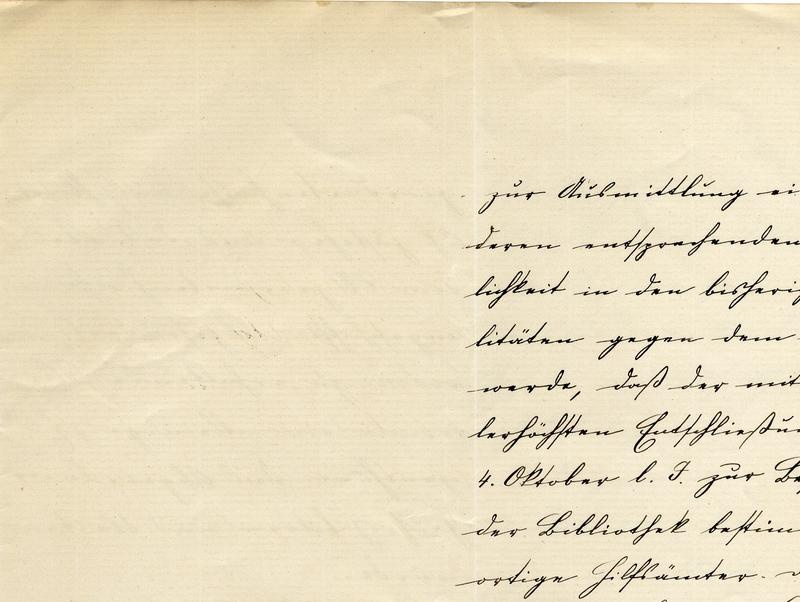 zur Ausmittlung ei
deren entsprechenden
lichkeit in den bisherig
litäten gegen dem
werde, daß der mit
lerhöchsten Entschließun
4. Oktober l. J. zur Be
der Bibliothek bestim
ortige Hilfsämter-